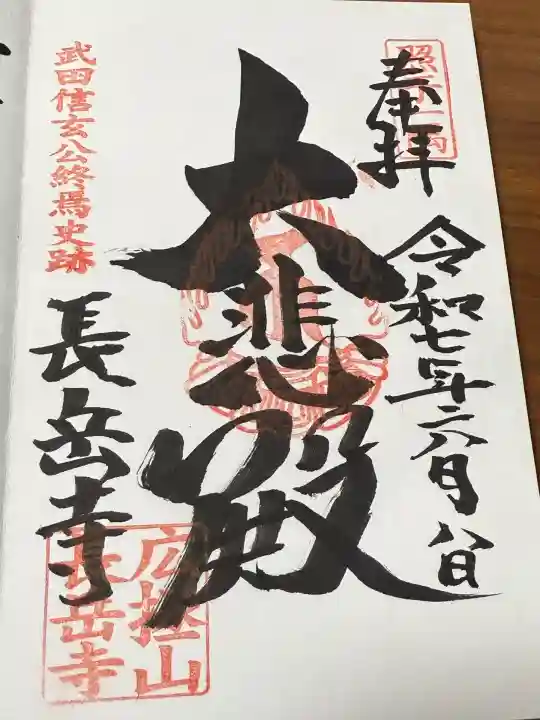 奉拝
令和七年六月八日
大悲殿
武田信玄公終焉史跡
長岳寺
広拯山
長岳寺